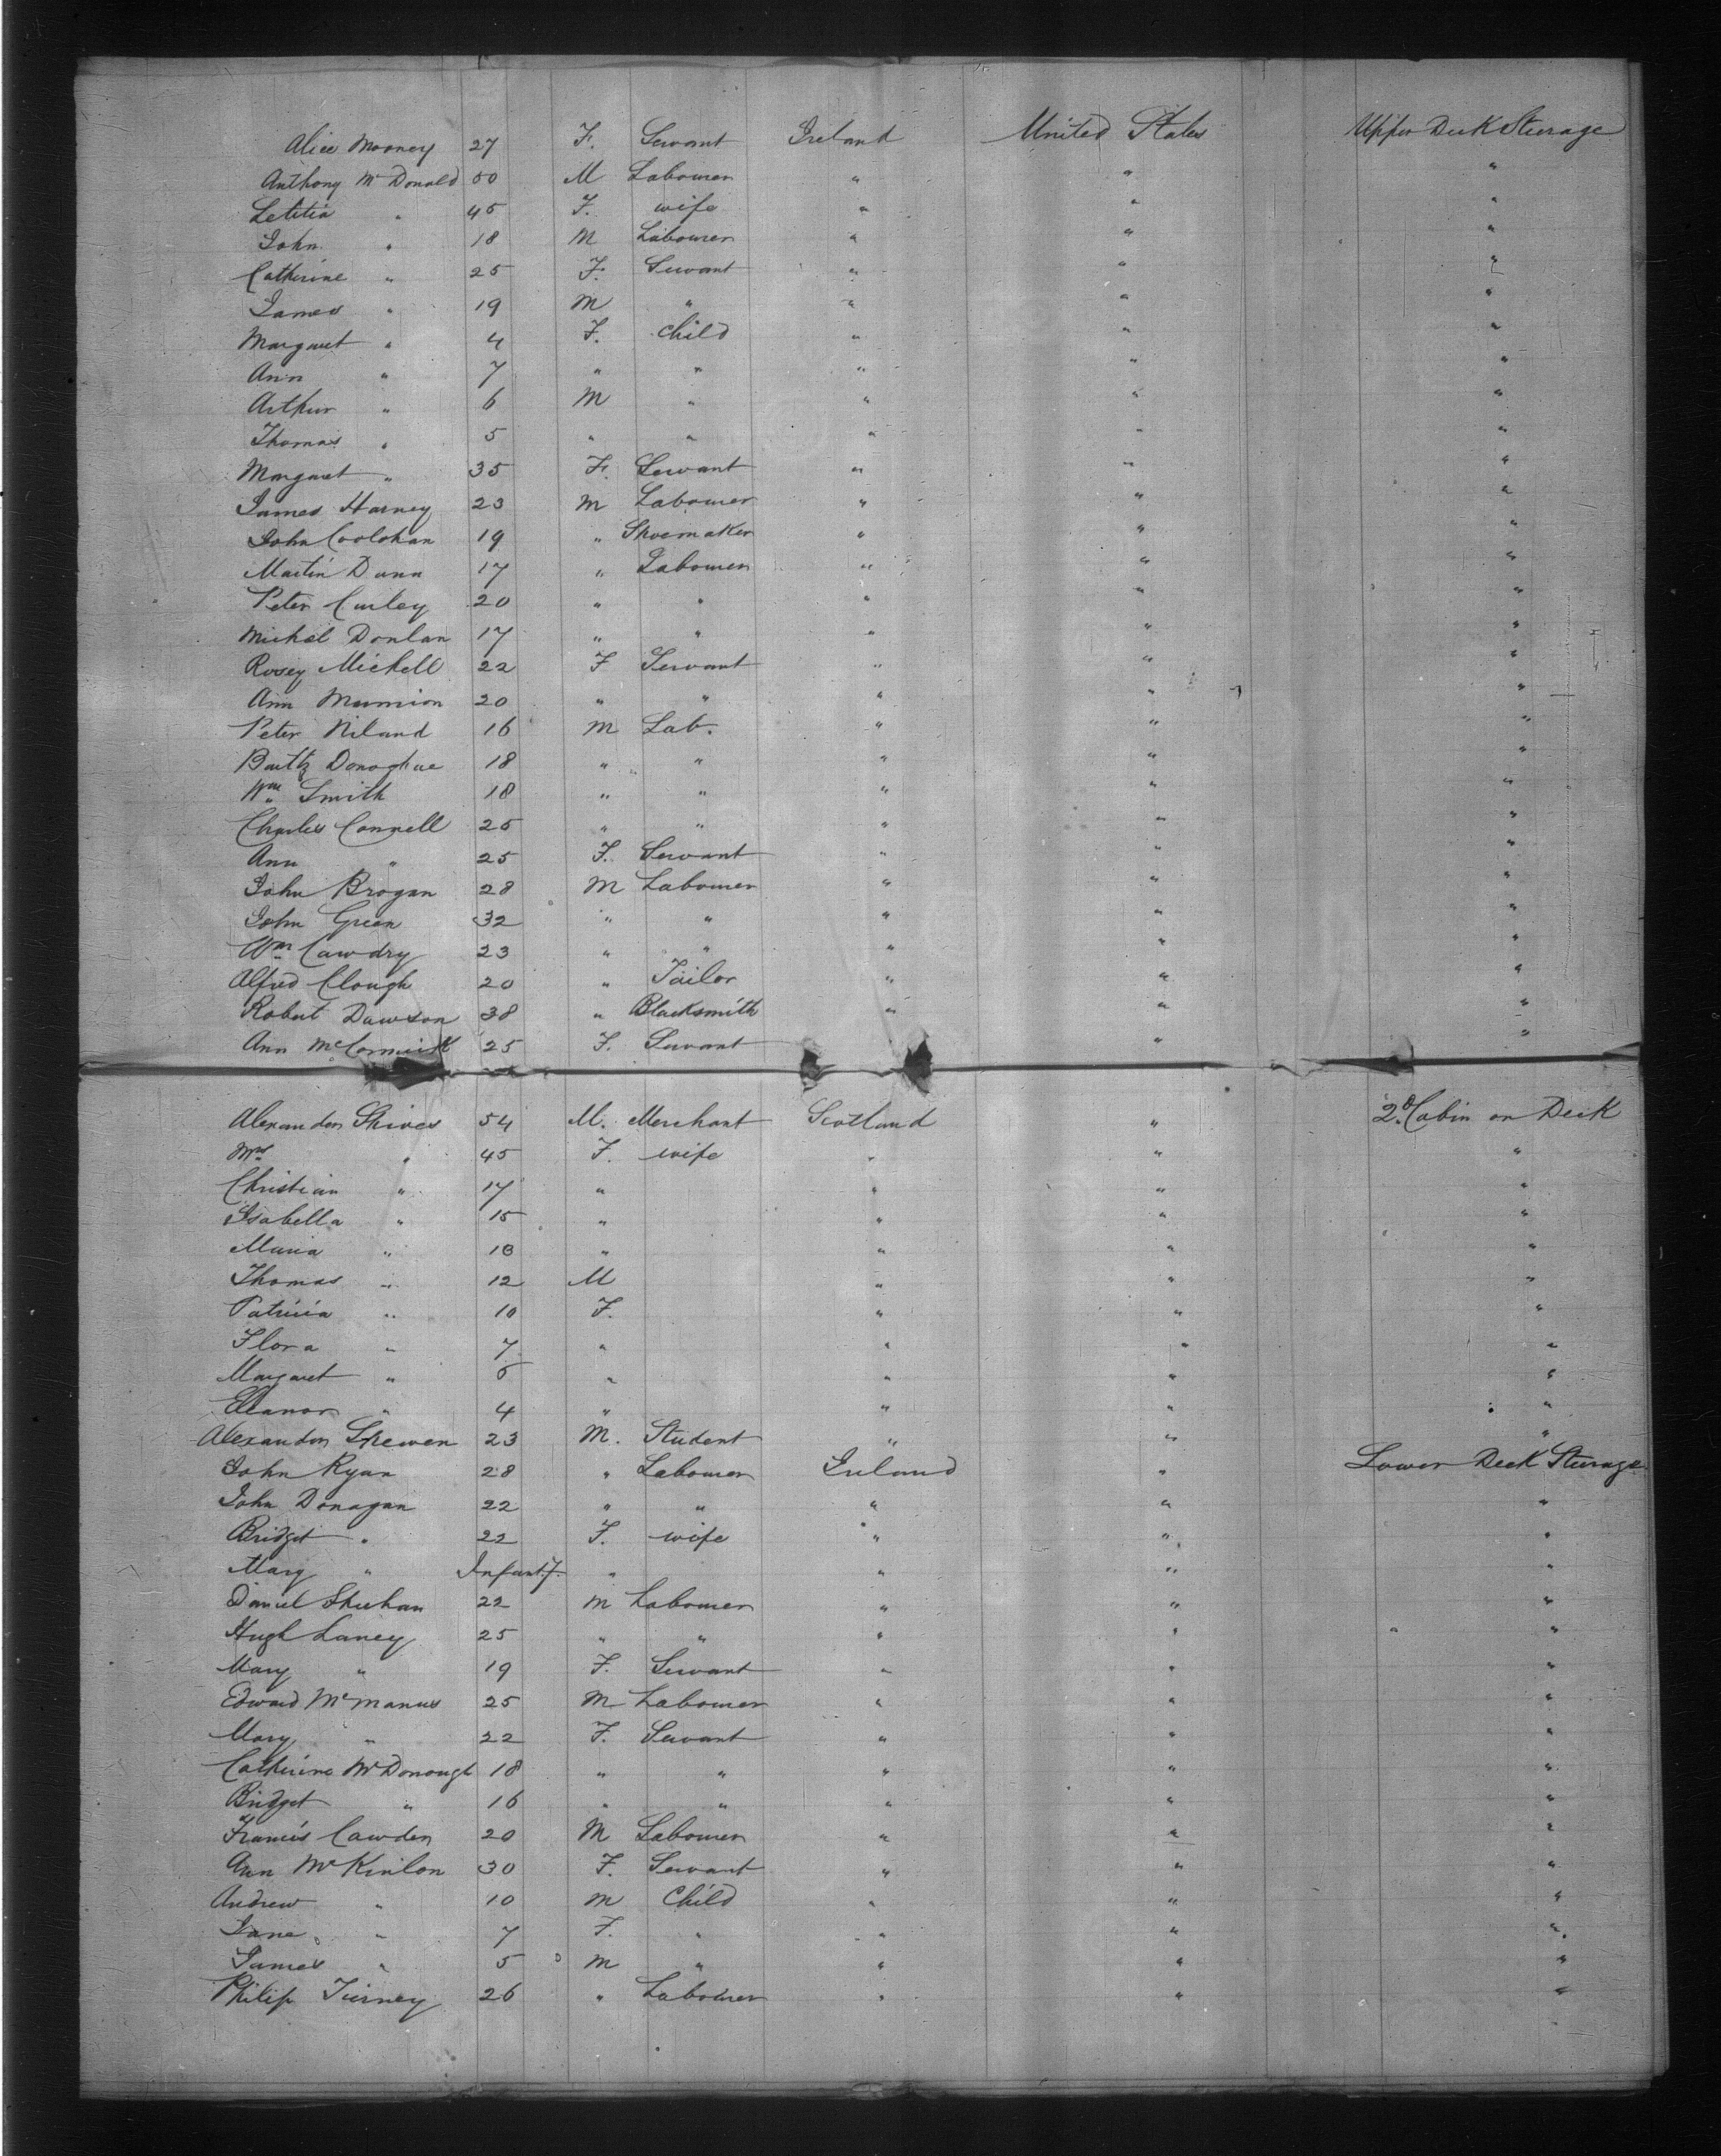 Alice Mooney 27 F. Servant Ireland United States Upper Deck Steerage
Anthony McDonald 50 M Labourer " " "
Letitia " 45 F. wife " " "
John " 18 M Labourer " " "
Catherine " 25 F. Servant " " "
James " 19 M " " " "
Margaret " 4 F. Child " " "
Ann " 7 " " " " "
Arthur " 6 M " " " "
Thomas " 5 " " " " "
Margaret " 35 F. Servant " " "
James Harney 23 M Labourer " " "
John Coolohan 19 " Shoemaker " " "
Martin Dunn 17 " Labourer " " "
Peter Curley 20 " " " " "
Michal Donlan 17 " " " " "
Rosey Michell 22 F Servant " " "
Ann 20 " " " " "
Peter Niland 16 M Lab. " " "
Donoghue 18 " " " " "
Wm Smith 18 " " " " "
Charles Connell 25 " " " " "
Ann " 25 F. Servant " " "
John Brogan 28 M Labourer " " "
John Green 32 " " " " "
Wm Cawdry 23 " " " " "
Alfred Clough 20 " Tailor " " "
Robert Dawson 38 " Blacksmith " " "
Ann McCormick 25 F. Servant " "
Alexander Shives 54 M. Merchant Scotland " 2d Cabin on Deck
Mrs " 45 F. wife " " "
Christian " 17 " " " "
Isabella " 15 " " " "
Maria " 13 " " " "
Thomas " 12 M " " "
Patricia " 10 F. " " "
Flora " 7 " " " "
Margaret " 5 " " " "
Eleanor " 4 " " " "
Alexander Skewen 23 M. Student " " "
John Ryan 28 " Labourer Ireland " Lower Deck Steerage
John Donagan 22 " " " " "
Bridget " 22 F. wife " " "
Mary " Infant F. " " " "
Daniel Sheehan 22 M Labourer " " "
Hugh Laney 25 " " " " "
Mary " 19 F. Servant " " "
Edward McManus 25 M Labourer " " "
Mary " 22 F. Servant " " "
Catherine McDonough 18 " " " " "
Bridget " 16 " " " " "
Francis Cawden 20 M Labourer " " "
Ann McKinlon 30 F. Servant " " "
Andrew " 10 M Child " " "
Jane " 7 F. " " " "
James " 5 M " " " "
Philip Tierney 26 " Labourer " " "